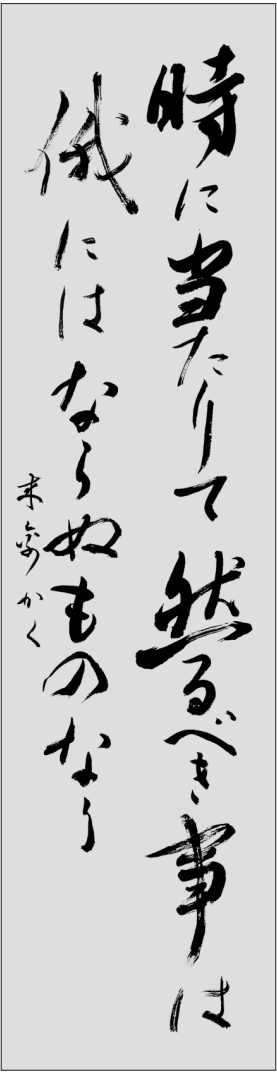 時に当たりて然るべき事は
俄にはならぬものなり
かく